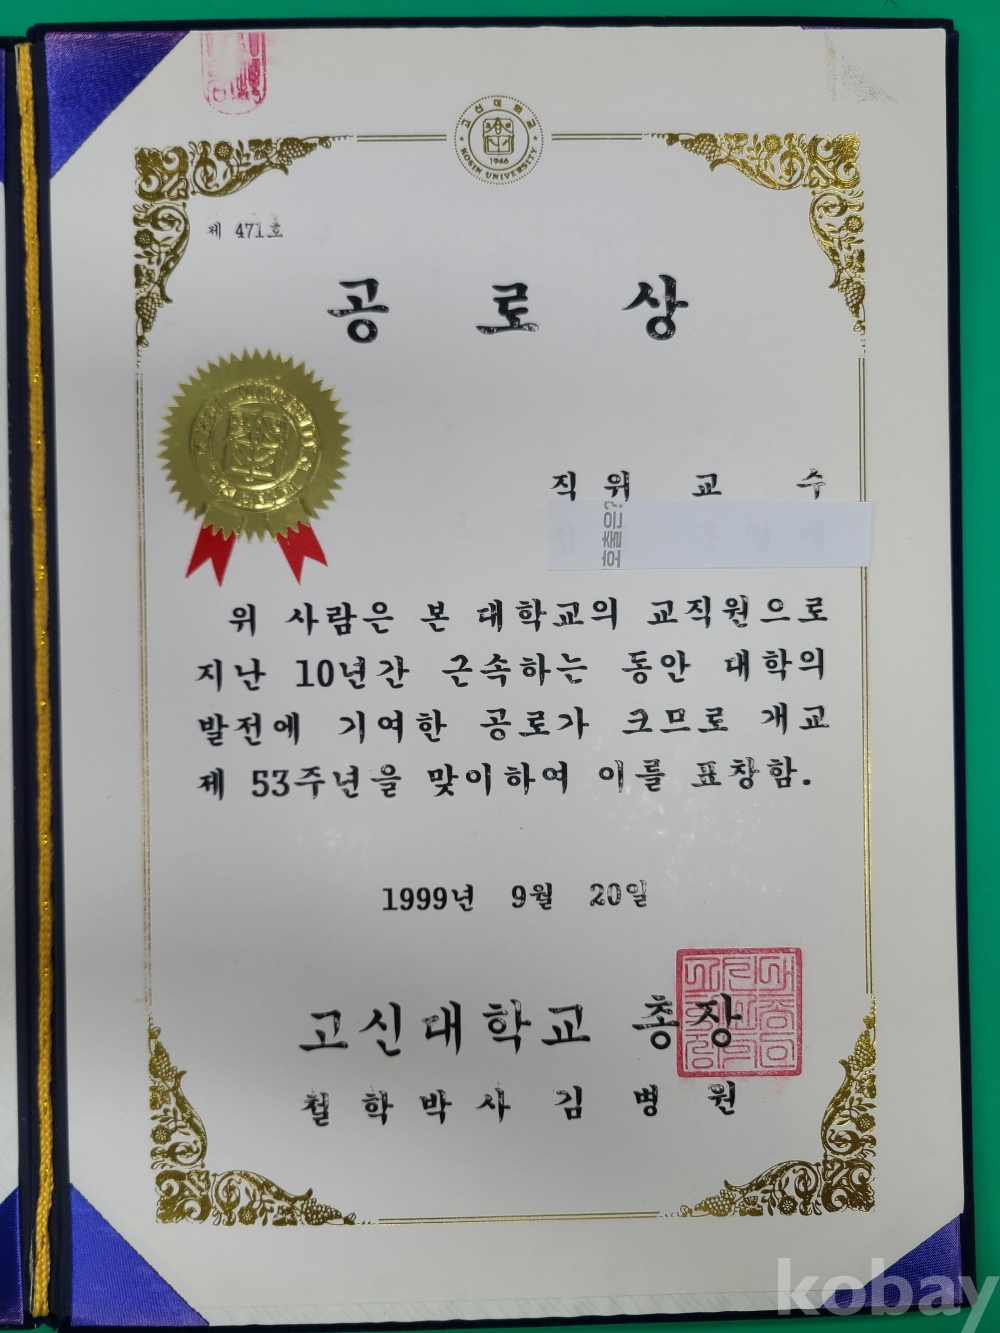 고신대학교
KOSIN UNIVERSITY
1946
제 471호
공 로 상
직 위 교 수
호출은?
위 사람은 본 대학교의 교직원으로
지난 10년간 근속하는 동안 대학의
발전에 기여한 공로가 크므로 개교
제 53주년을 맞이하여 이를 표창함.
1999년 9월 20일
고신대학교 총장
철학박사 김 병 원
kobay